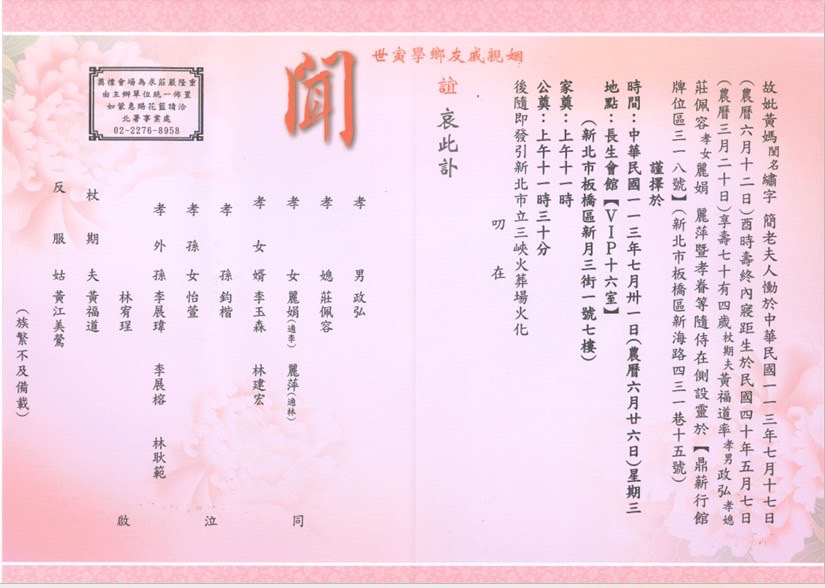 故妣黃媽閨名繡字 簡老夫人慟於中華民國一一三年七月十七日
(農曆六月十二日)酉時壽終內寢距生於民國四十年五月七日
(農曆三月二十日)享壽七十有四歲杖期夫黃福道率孝男政弘孝媳
莊佩容孝女麗娟 麗萍暨孝眷等隨侍在側設靈於【鼎薪行館
牌位區三一八號】(新北市板橋區新海路四三一巷十五號)
謹擇於
時間:中華民國一一三年七月卅一日(農曆六月廿六日)星期三
地點:長生會館【VIP十六室】
(新北市板橋區新月三街一號七樓)
家奠:上午十一時
公奠:上午十一時三十分
後隨即發引新北市立三峽火葬場火化
叨 在
姻親戚友鄉學寅世
誼 哀此訃
聞
孝 男 政弘
孝 媳 莊佩容
孝 女 麗娟(適李) 麗萍(適林)
孝 女 婿 李玉森 林建宏
孝 孫 鈞楷
孝 孫 女 怡萱
孝 外 孫 李展瑋 李展榕 林耿範
林宥珵
杖 期 夫 黃福道
反 服 姑 黃江美鶯
同 泣 啟
(族繁不及備載)
奠禮會場為求莊嚴隆重
由主辦單位統一佈置
如蒙惠賜花籃請洽
北署事業處
02-2276-8958